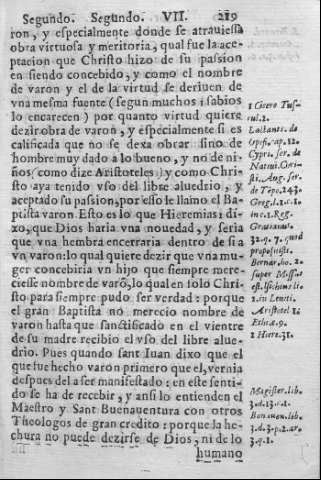 Segundo. Segundo. VII. 219
ron, y especialmente donde se atrauiessa
obra virtuosa y meritoria, qual fue la ace-
ptacion que Christo hizo de su passion
en siendo concebido, y como el nombre
de varon y el de la virtud se deriuen de
vna mesma fuente (segun muchos sabios
lo encarecen) por quanto virtud quiere
dezir obra de varon, y especialmente si es
calificada que no se dexa obrar sino de
hombre muy dado a lo bueno, y no de ni-
ños (como dize Aristoteles) y como Chri-
sto aya tenido vso del libre aluedrio, y
aceptado su passion, por esso le llamo el Ba-
ptista varon. Esto es lo que Hieremias di-
xo, que Dios haria vna nouedad, y seria
que vna hembra encerraria dentro de si a
vn varon: lo qual quiere dezir que vna mu-
ger concebiria vn hijo que siempre mere-
ciesse nombre de varõ, lo qual en solo Chri-
sto para siempre pudo ser verdad: porque
el gran Baptista no merecio nombre de
varon hasta que sanctificado en el vientre
de su madre recibio el vso del libre alue-
drio. Pues quando sant Iuan dixo que el
que fue hecho varon primero que el, vernia
despues del a ser manifestado: en este senti-
do se ha de recebir, y ansi lo entienden el
Maestro y Sant Buenauentura con otros
Theologos de gran credito: porque la he-
chura no puede dezirse de Dios, ni de lo
humano
1 Cicero Tus-
cul. 2.
Lactant. de
Opifi. cap. 12.
Cypri. ser. de
Natiui. Chri-
sti. Aug. ser.
de Tẽpo. 243.
Greg. l. 2. c. 1.
in c. 1. Reg.
Gratianus
32. q. 7. quid
Bernar. ho. 2.
super Miss.
est.
2. in Leuiti.
Aristotel.
Ethic.
2 Hiere. 31.
Magister. lib.
3. d.
Bonauen. lib.
3. d. 3. p. 2. ar.
3. q. 1.